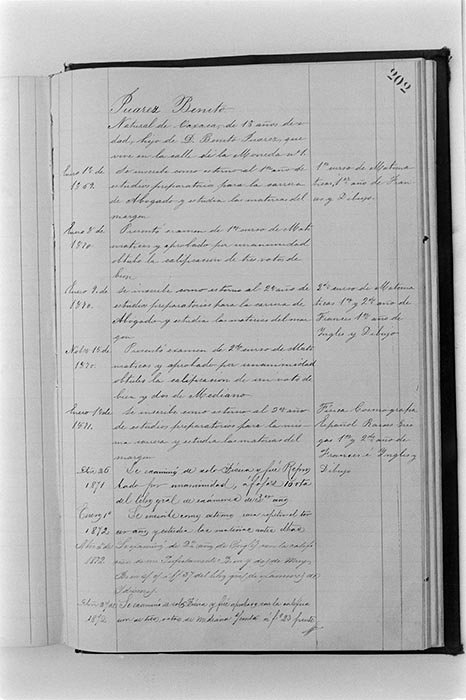 202
Juarez Benito
Natural de Oaxaca, de 15 años de e-
dad, hijo de D. Benito Juarez, que
vive en la calle de la Moneda nº 1.
Enero 12 de
1869.
Se inscribe como esterno al 1er año de
estudios preparatorios para la carrera
de Abogado y estudia las materias del
margen
1er curso de Matema
ticas, 1er año de Fran
ces y Dibujo.
Enero 3 de
1870.
Presentó examen de 1er curso de Mate
maticas y aprobado por unanimidad
obtubo la calificacion de tres votos de
bien
Enero 9 de
1870.
Se inscribe como esterno al 2º año de
estudios preparatorios para la carrera de
Abogado y estudia las materias del mar
gen
2º curso de Matema
ticas 1º y 2º año de
Frances 1er año de
Ingles y Dibujo
Nobre 12 de
1870.
Presentó examen de 2º curso de Mate
maticas y aprobado por unanimidad
obtubo la calificacion de un voto de
bien y dos de Mediano
Enero 12 de
1871.
Se inscribe como esterno al 3er año
de estudios preparatorios para la mis
ma carrera y estudia las materias del
margen
Fisica Cosmografia
Español Raices Grie
gas 1º y 2º año de
Frances é Ingles y
Dibujo
26
1871
Se examinó de solo Fisica y fué Repro
bado por unanimidad, á fojas
del libro gral de exámenes de 3er año
Enero 1º
1872
Se inscribe como esterno para repetir el ter
cer año, y estudia las materias
1872.
Se examinó de 2º año de Inglés con la califi
cacion de
Bien del libro gral de examenes de
Idiomas
1872
Se examinó de solo Fisica y fué aprobado con la califica
cion de tres votos de mediano á fs 23 frente